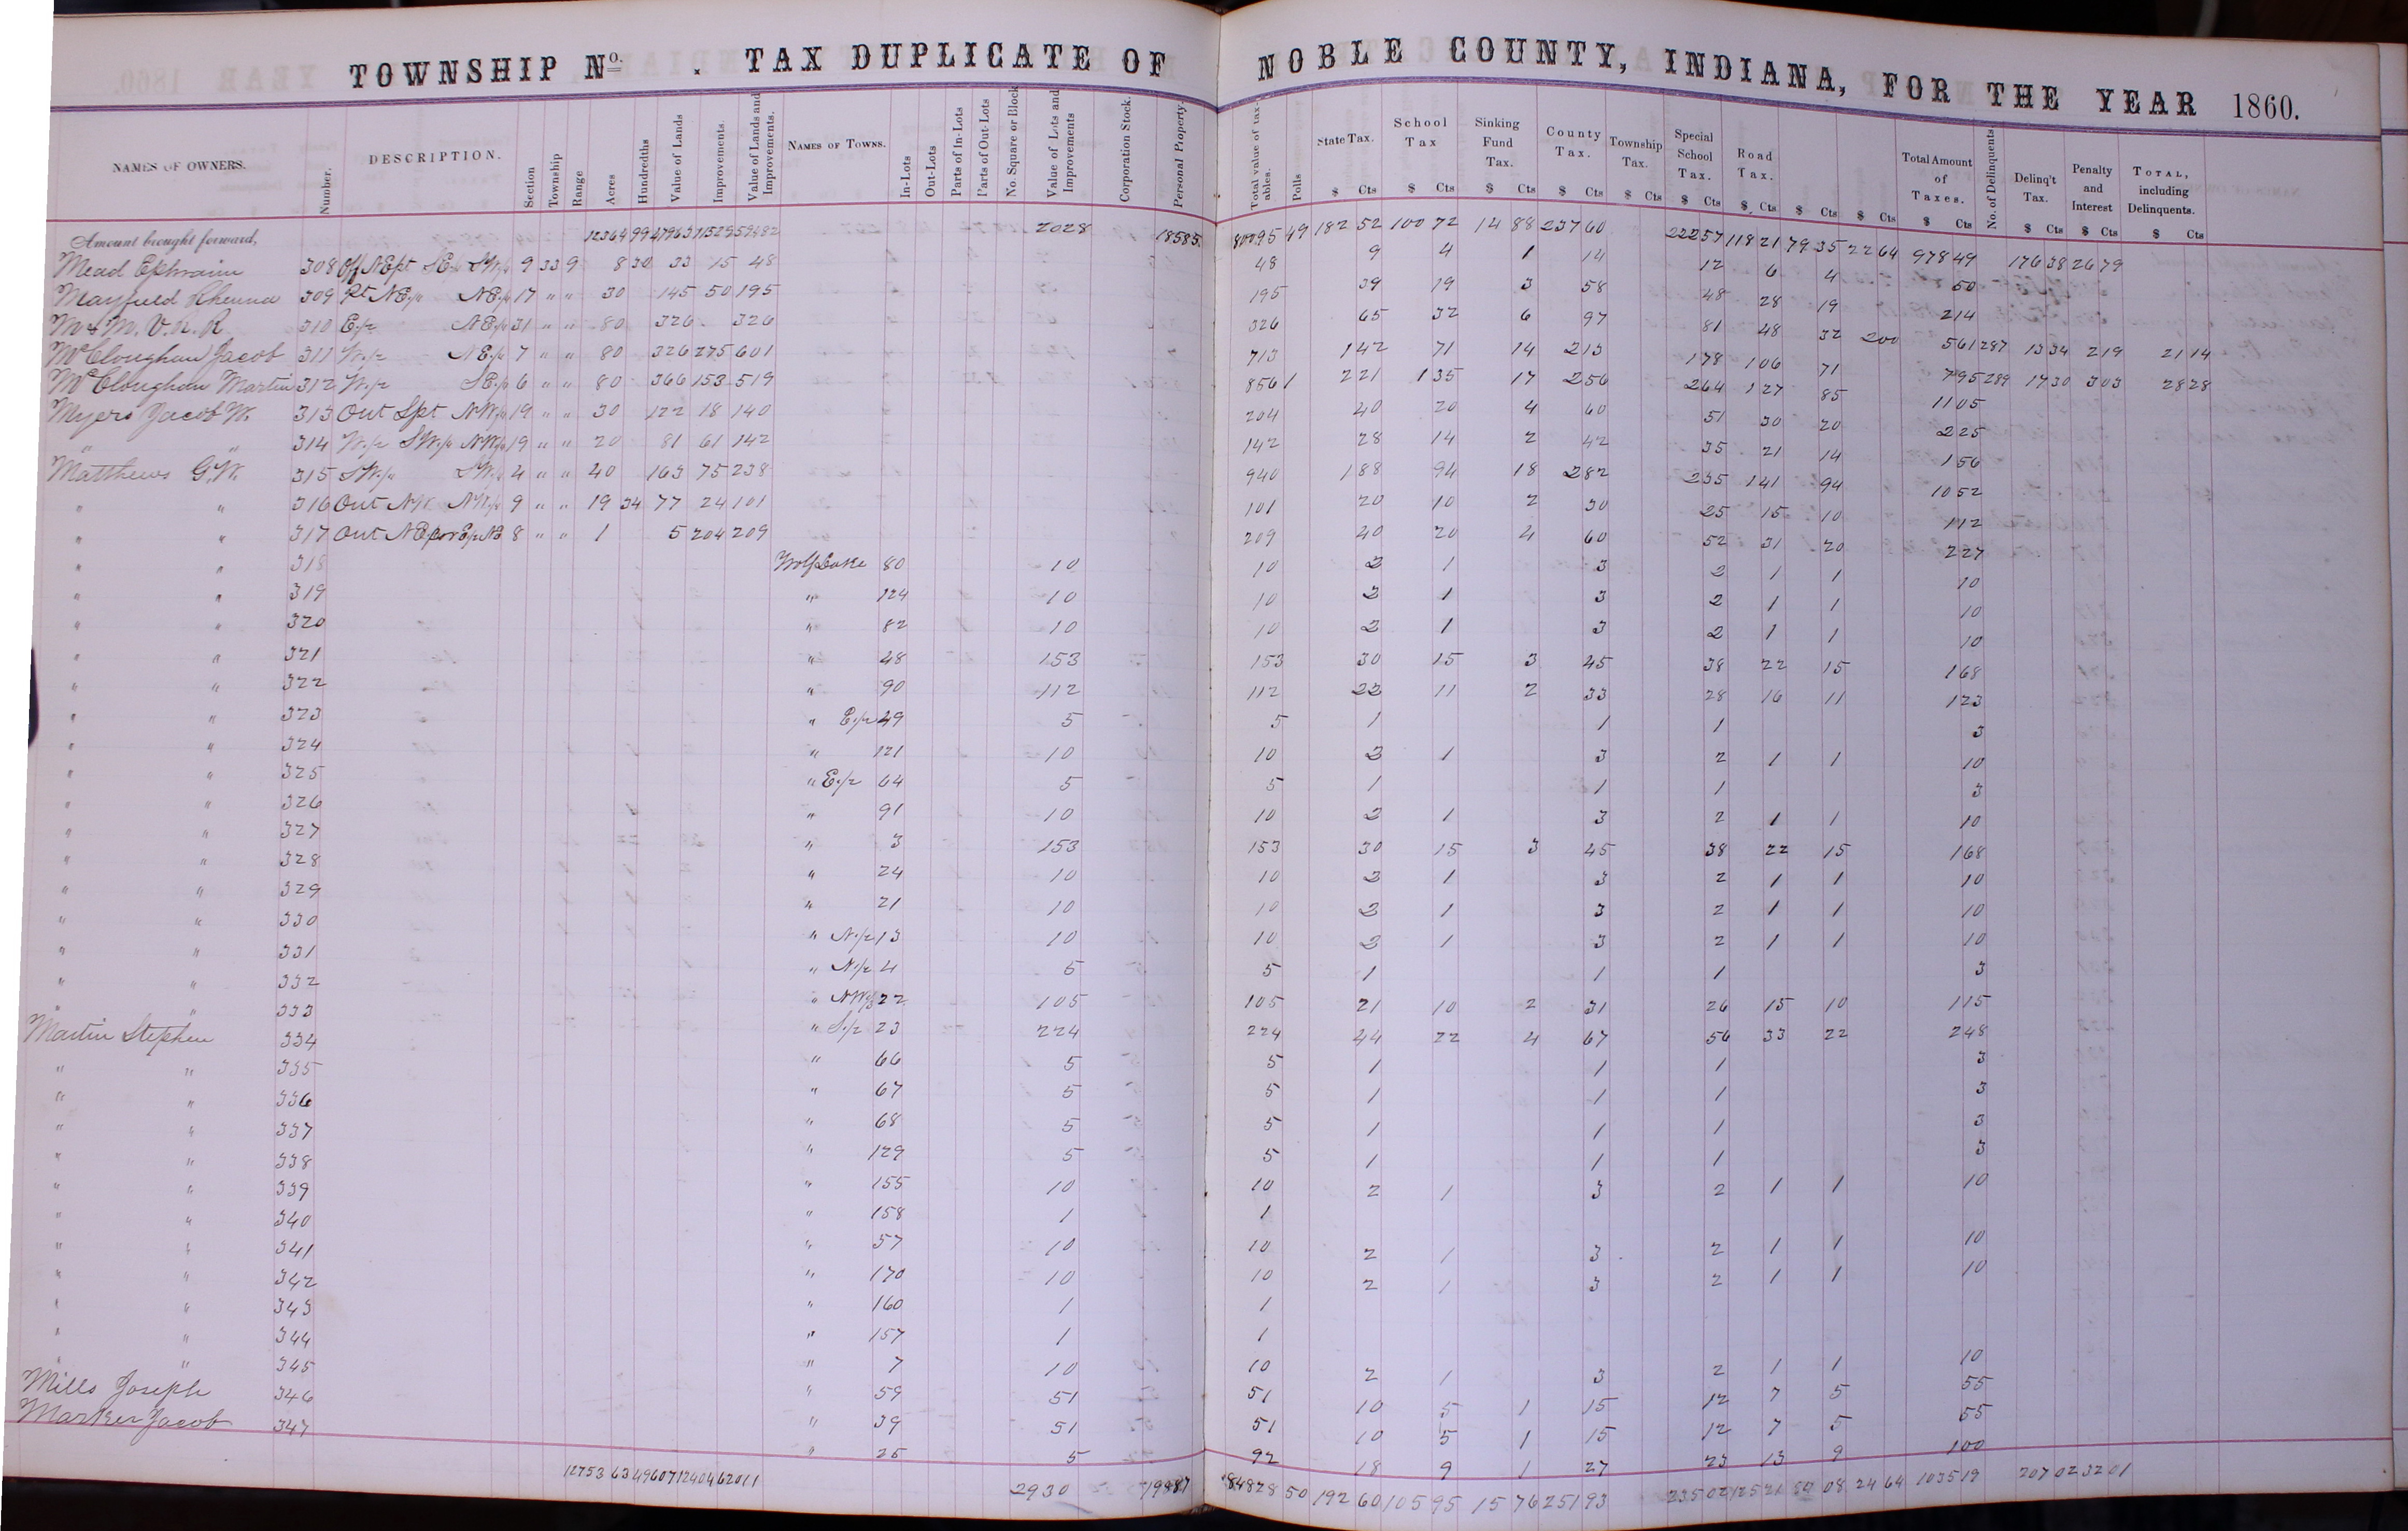 TOWNSHIP No. . TAX DUPLICATE OF NOBLE COUNTY, INDIANA, FOR THE YEAR 1860.
NAMES OF OWNERS. Number. DESCRIPTION. Section Township Range Acres Hundredths Value of Lands Improvements. Value of Lands and Improvements. NAMES OF TOWNS. In-Lots Out-Lots Parts of In-Lots Parts of Out-Lots No. Square or Block Value of Lots and Improvements Corporation Stock. Personal Property. Total value of taxables. Polls State Tax. School Tax Sinking Fund Tax. County Tax. Township Tax. Special School Tax. Road Tax. Total Amount of Taxes. No. of Delinquents Delinq't Tax. Penalty and Interest TOTAL, including Delinquents.
$ Cts $ Cts $ Cts $ Cts $ Cts $ Cts $ Cts $ Cts $ Cts $ Cts $ Cts $ Cts $ Cts
Amount brought forward, 12364 99 47963 11529 59482 2028 18585 80095 49 182 52 100 72 14 88 237 60 222 57 118 21 79 35 22 64 978 49 176 38 26 79
Mead Ephraim 308 Off NEpt SE SW 9 33 9 8 30 33 15 48 48 9 4 1 14 12 6 4 50
Mayfield 309 Pt NE/4 NE/4 17 " " 30 145 50 195 195 39 19 3 58 48 28 19 214
310 E/2 NE/4 31 " " 80 326 326 326 65 32 6 97 81 48 32 200 561 287 13 34 2 19 21 14
McCloughan Jacob 311 W/2 NE/4 7 " " 80 326 275 601 713 142 71 14 213 178 106 71 795 289 17 30 3 03 28 28
McCloughan Martin 312 W/2 SE/4 6 " " 80 366 153 519 856 1 221 135 17 256 264 127 85 1105
Myers Jacob W. 313 Out Spt NW/4 19 " " 30 122 18 140 204 40 20 4 60 51 30 20 225
" " 314 W/2 SW/4 NW/4 19 " " 20 81 61 142 142 28 14 2 42 35 21 14 156
Matthews G.W. 315 SW/4 SW/4 4 " " 40 163 75 238 940 188 94 18 282 235 141 94 1052
" " 316 Out NW NW/4 9 " " 19 34 77 24 101 101 20 10 2 30 25 15 10 112
" " 317 Out NEcor E/2 NE 8 " " 1 5 204 209 209 40 20 4 60 52 31 20 227
" " 318 Wolf Lake 80 10 10 2 1 3 2 1 1 10
" " 319 " 124 10 10 2 1 3 2 1 1 10
" " 320 " 82 10 10 2 1 3 2 1 1 10
" " 321 " 48 153 153 30 15 3 45 38 22 15 168
" " 322 " 90 112 112 22 11 2 33 28 16 11 123
" " 323 " E/2 49 5 5 1 1 1 3
" " 324 " 121 10 10 2 1 3 2 1 1 10
" " 325 " E/2 64 5 5 1 1 1 3
" " 326 " 91 10 10 2 1 3 2 1 1 10
" " 327 " 3 153 153 30 15 3 45 38 22 15 168
" " 328 " 24 10 10 2 1 3 2 1 1 10
" " 329 " 21 10 10 2 1 3 2 1 1 10
" " 330 " N/2 13 10 10 2 1 3 2 1 1 10
" " 331 " N/2 4 5 5 1 1 1 3
" " 332 " NW/3 22 105 105 21 10 2 31 26 15 10 115
" " 333 " S/2 23 224 224 44 22 4 67 56 33 22 248
Martin Stephen 334 " 66 5 5 1 1 1 3
" " 335 " 67 5 5 1 1 1 3
" " 336 " 68 5 5 1 1 1 3
" " 337 " 129 5 5 1 1 1 3
" " 338 " 155 10 10 2 1 3 2 1 1 10
" " 339 " 158 1 1
" " 340 " 57 10 10 2 1 3 2 1 1 10
" " 341 " 170 10 10 2 1 3 2 1 1 10
" " 342 " 160 1 1
" " 343 " 157 1 1
" " 344 " 7 10 10 2 1 3 2 1 1 10
" " 345 " 59 51 51 10 5 1 15 12 7 5 55
Mills Joseph 346 " 39 51 51 10 5 1 15 12 7 5 55
Marker Jacob 347 " 25 5 92 18 9 1 27 23 13 9 100
12753 63 49607 12404 62011 2930 19987 84828 50 192 60 105 95 15 76 251 93 235 02 125 21 84 08 24 64 1035 19 207 02 32 01